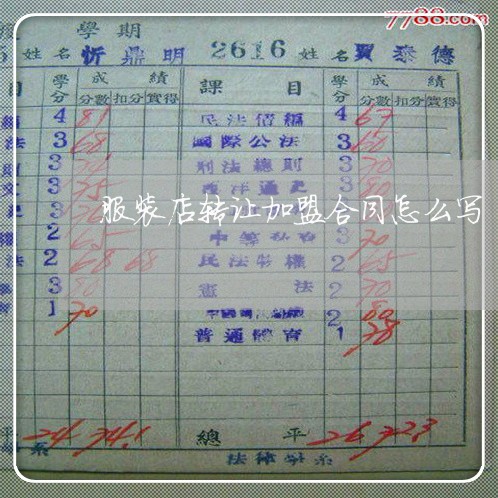 7788.com
學 期
姓 名 忻 鼎 明 2616 姓 名 賈 泰 德
目 學分 成 績 課 目 學分 成 績
分數 扣分 實得 分數 扣分 實得
4 81 民法債編 4 67
法 3 68 國際公法 3 60
3 刑法總則 3 70
文 3 75 西洋通史 3 80
服装店转让加盟合同怎么写
權 2 65 中等 3 70
法 2 68 68 民法物權 2 65
3 80 憲 法 2 70
1 70 中國 2 80
普通體育 1 78
平 24 74.1 總 平 26 72.3
系 法律學系